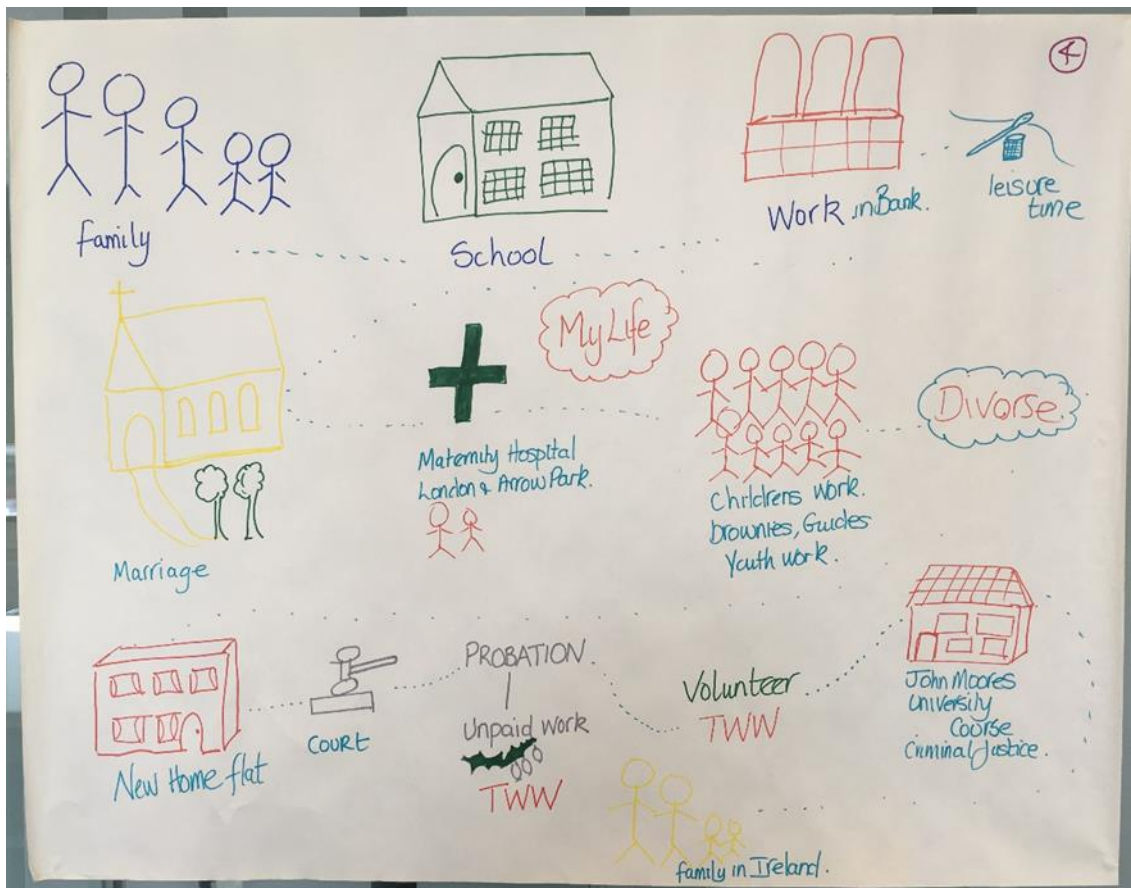 4
family
School
Work in Bank.
leisure
time
My Life
Marriage
Maternity Hospital
London & Arrow Park.
Childrens Work.
Brownies, Guides
Youth work.
Divorse.
New Home flat
COURT
PROBATION
Unpaid Work
TWW
Volunteer
TWW
John Moores
University
Course
Criminal Justice.
family in Ireland.